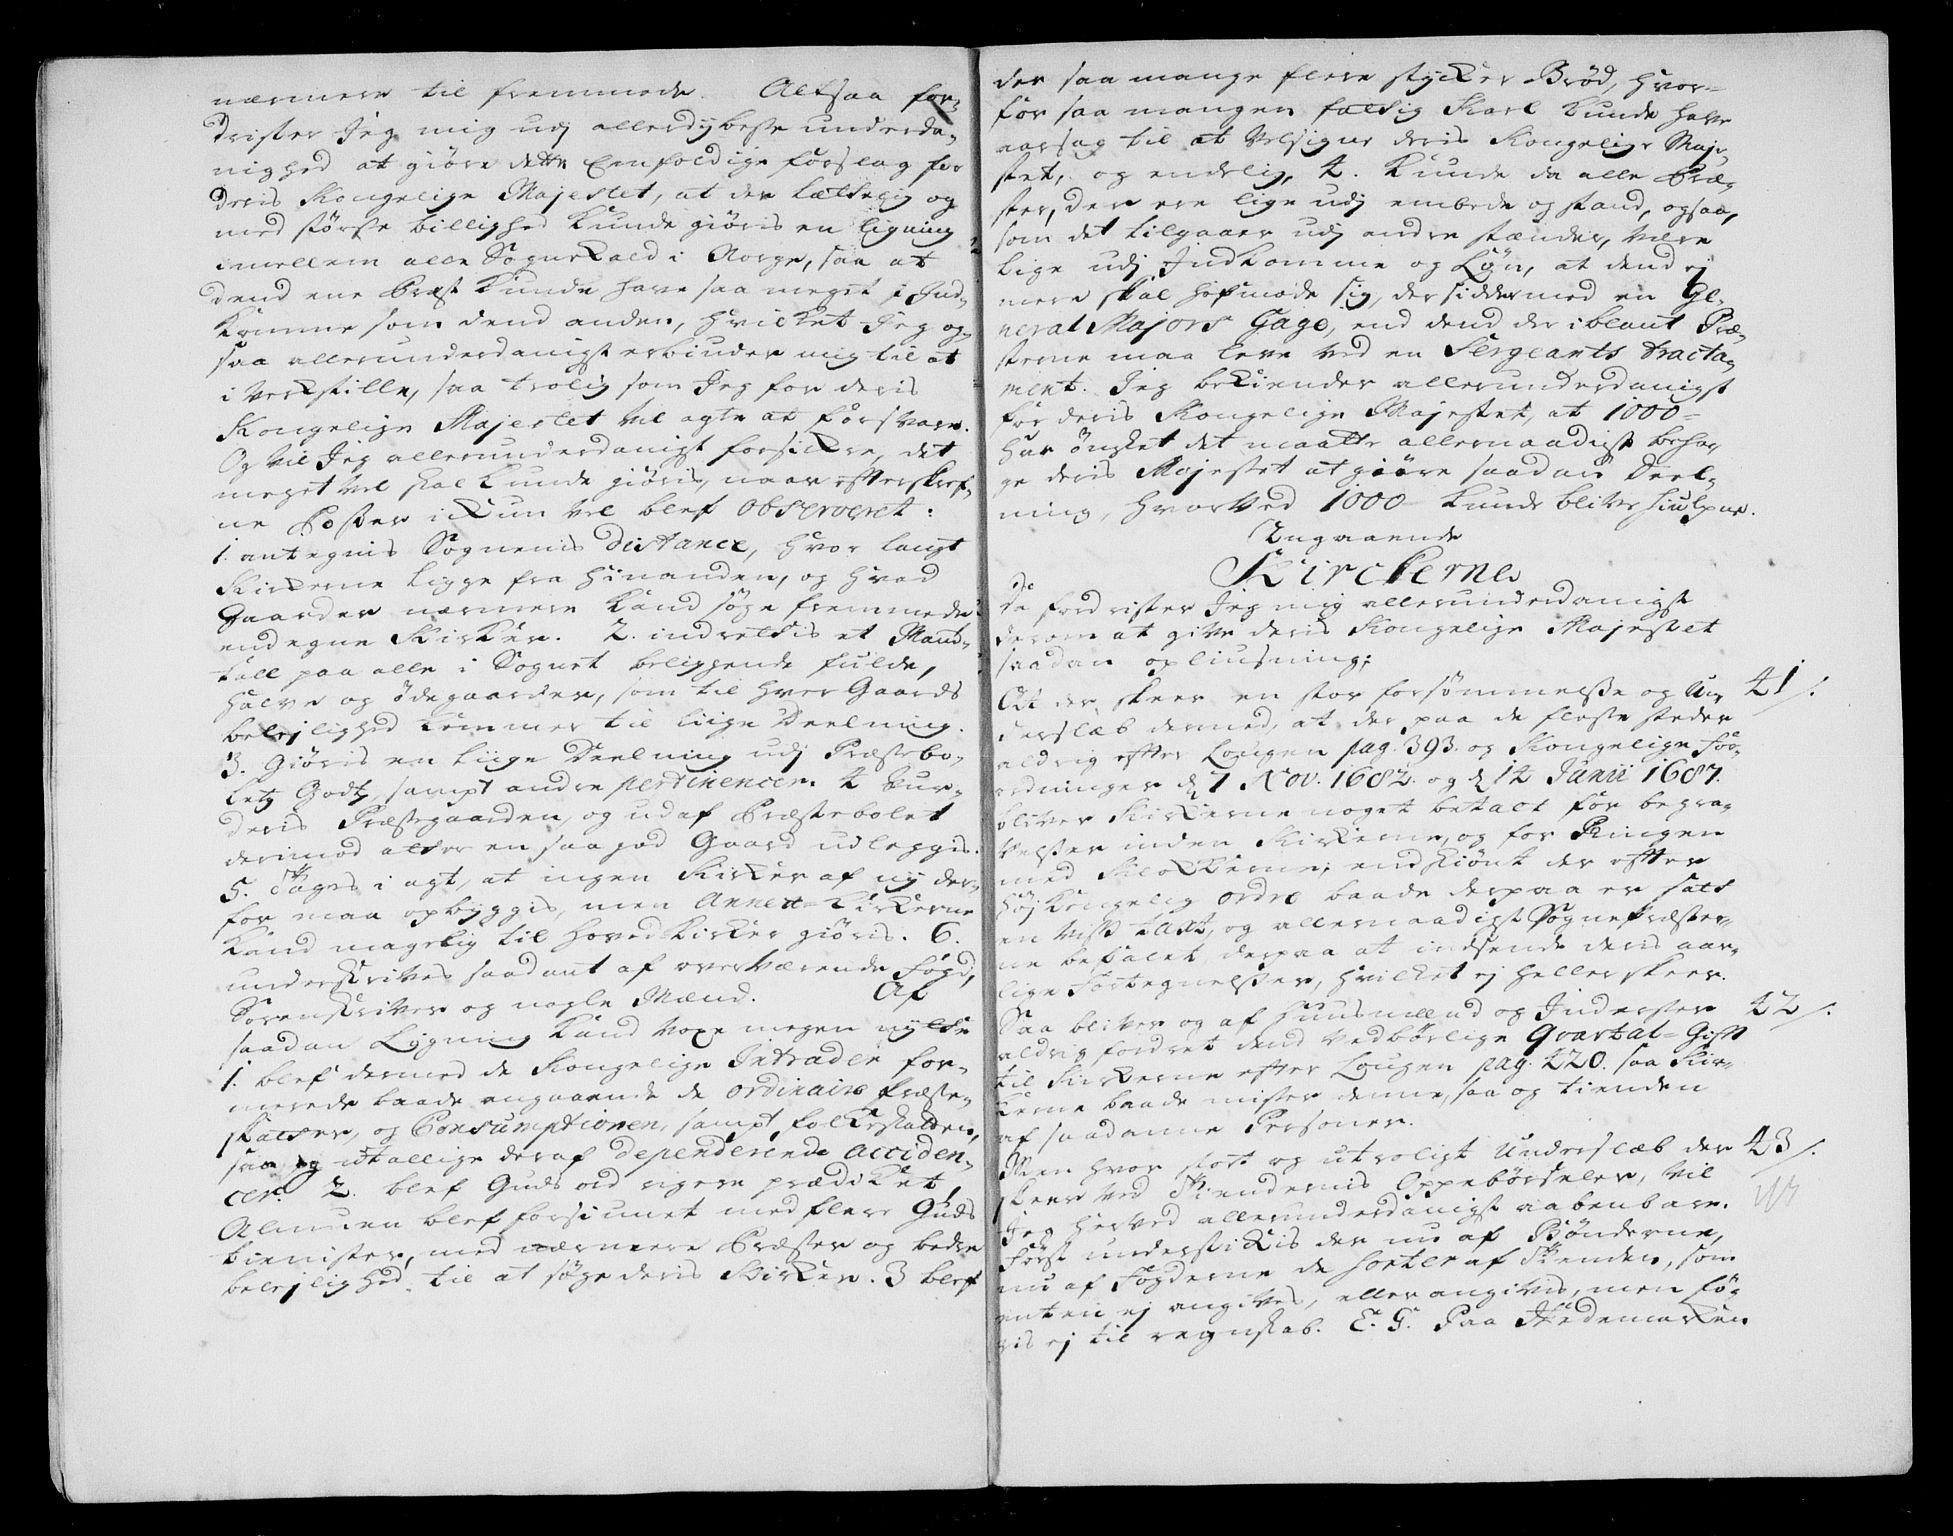 nærmere til fremmede. Altsaa for-
drister Jeg mig udj allerdybeste underda-
nighed at giöre dette Eenfoldige forslag for
Deris Kongelige Majestet, at der lættelig og
med störste billighed kunde giöris en ligning
imellem alle Sognekald i Norge, saa at
dend ene Præst kunde have saa meget i Ind-
komme som dend anden, hvilket Jeg og-
saa allerunderdanigst erbiuder mig til at
i verkstille, saa trolig som Jeg for deris
Kongelige Majestet vil agte at forsvare.
Og vil Jeg allerunderdanigst forsickre, det
meget vel skal kunde giöris, naar effterskref-
ne Poster ickun vel blef observeret:
1. antegnis Sognenis distance, hvor langt
Kirckerne ligge fra hinanden, og hvad
Gaarder nærmere kand söge fremmede
end egne Kirker. 2. indrettis et Mand-
tall paa alle i Sognet beliggende fulde,
halve og ödegaarder, som til hver Gaards
belejlighed kommer til liige Deelning.
3. Giöris en liige Deelning udj Præstebo-
lets Godtz, sampt andre pertinencer. 4 Vur-
deris Præstegaarden, og udaf Præstebolet
derimod atter en saa god Gaard udleggis.
5. Tages i agt, at ingen Kirker af ny der-
for maa opbyggis, men Annex-Kirkerne
kand magelig til hoved-Kirker giöris. 6.
underskrives saadant af overværende Fogd,
Sorenskriver og nogle Mænd. Af
saadan Ligning kand voxe megen nytte
1. blef dermed de Kongelige Intrader for-
meerede baade angaaende de ordinaire Præste-
skatter, og Consumptionen, sampt folkeskatten,
saa og utallige deraf dependerende acciden-
cer. 2. blef Guds ord rigere prædicket,
Almuen blef forsiunet med flere Guds
tienister, med nærmere Præster og bedre
belejlighed til at söge deris Kirker. 3 blef
der saa mange flere stycker Bröd, hvor-
for saa mangen fattig Karl kunde have
aarsag til at velsigne deris Kongelige Maje-
stet, og endelig, 4. kunde da alle Præ-
ster, der ere lige udj embede og stand, ogsaa,
som det tilgaaer udj andre stænder, være
lige udj Indkomme og Lön, at dend ej
mere skal hofmode sig, der sidder med en Ge-
neral Majors Gage, end dend der iblant Præ-
sterne maa leve ved en Sergeants tracta-
ment. Jeg bekiender allerunderdanigst
for deris Kongelige Majestet, at 1000-
har önsket det maatte allernaadigst beha-
ge deris Majestet at giöre saadan Deel-
ning, hvorved 1000 kunde blive hiulpne.
Angaaende
Kirckerne
Da fordrister Jeg mig allerunderdanigst
derom at give deris Kongelige Majestet
saadan opliusning;
At der skeer en stor forsömmelse og Un- 41/.
derslæb dermed, at der paa de fleste steder
aldrig effter Lougen pag. 393. og Kongelige For-
ordninger d 7 Nov. 1682. og d 12 Junii 1687.
bliver Kirkerne noget betalt for begra-
velser inden Kirkerne, og for Ringen
med Klokkerne; endskiönt der effter
höj Kongelig ordre baade derpaa er satt
en viss taxt, og allernaadigst Sognepræster-
ne befalet derpaa at indsende deris aar-
lige Fortegnelser, hvilket ej heller skeer.
Saa bliver og af Huusmænd og Inderster 42/.
aldrig fordret dend vedbörlige Qvartal-Gift
til Kirkerne effter Lougen pag. 420. saa Kir-
kerne baade mister denne, saa og tienden
af saadanne Personer.
Men hvor stort og utroligt Underslæb der 43/.
skeer ved Tiendernis Oppebörseler, vil
Jeg herved allerunderdanigst aabenbare.
Först understickis der nu af Bönderne,
nu af Fogderne de sorter af Tienden, som
enten ej angives, eller angives, men fö-
ris ej til regnskab. E. G. Paa Hedemarken